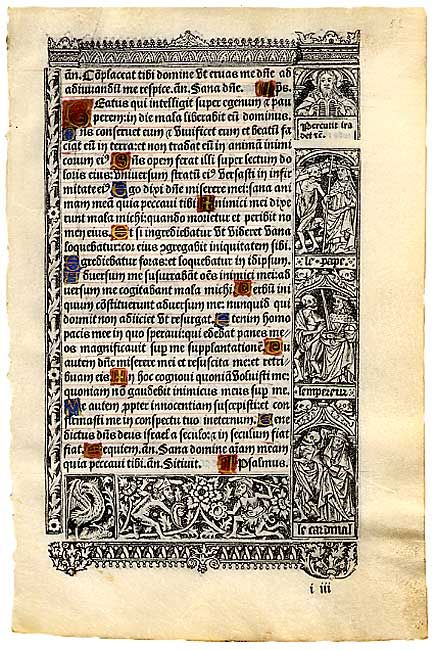 añ. Cõplaceat tibi domine ut eruas me dñe ad
adiuvandũ me respice. añ. Sana dñe. Ps.
Beatus qui intelligit super egenum & pau
perem: in die mala liberabit eũ dominus.
Dñs conservet eum & vivificet eum et beatũ fa
ciat eũ in terra: et non tradat eũ in animã inimi
corum eiꝰ Dñs opem ferat illi super lectum do
loris eius: universum stratũ eiꝰ versasti in infir
mitate eiꝰ Ego dixi dñe miserere mei: sana ani
mam meã quia peccavi tibi Inimici mei dixe
runt mala michi: quando morietur et peribit no
men eius Et si ingrediebatur ut videret vana
loquebatur: cor eius ꝯgregabit iniquitatem sibi.
Egrediebatur foras: et loquebatur in idipsum.
Adversum me susurrabãt oẽs inimici mei: ad
versum me cogitabant mala michi Verbũ ini
quum cõstituerunt adversum me: nunquid qui
dormit non adiiciet ut resurgat. Etenim homo
pacis mee in quo speravi: qui edebat panes me
os magnificavit sup me supplantationẽ. Tu
autem dñe miserere mei et resuscita me: et retri
buam eis In hoc cognovi quoniã voluisti me
quoniam no gaudebit inimicus meus sup me.
Me autem ꝓpter innocentiam suscepisti: et con
firmasti me in conspectu tuo ineternum. Bene
dictus dñs deus Israel a seculo: & in seculum fiat
fiat. Requiem. añ. Sana domine aĩam meam
quia peccavi tibi. añ. Sitivit. Psalmus.
le pape
lempereur
le cardinal
i iii